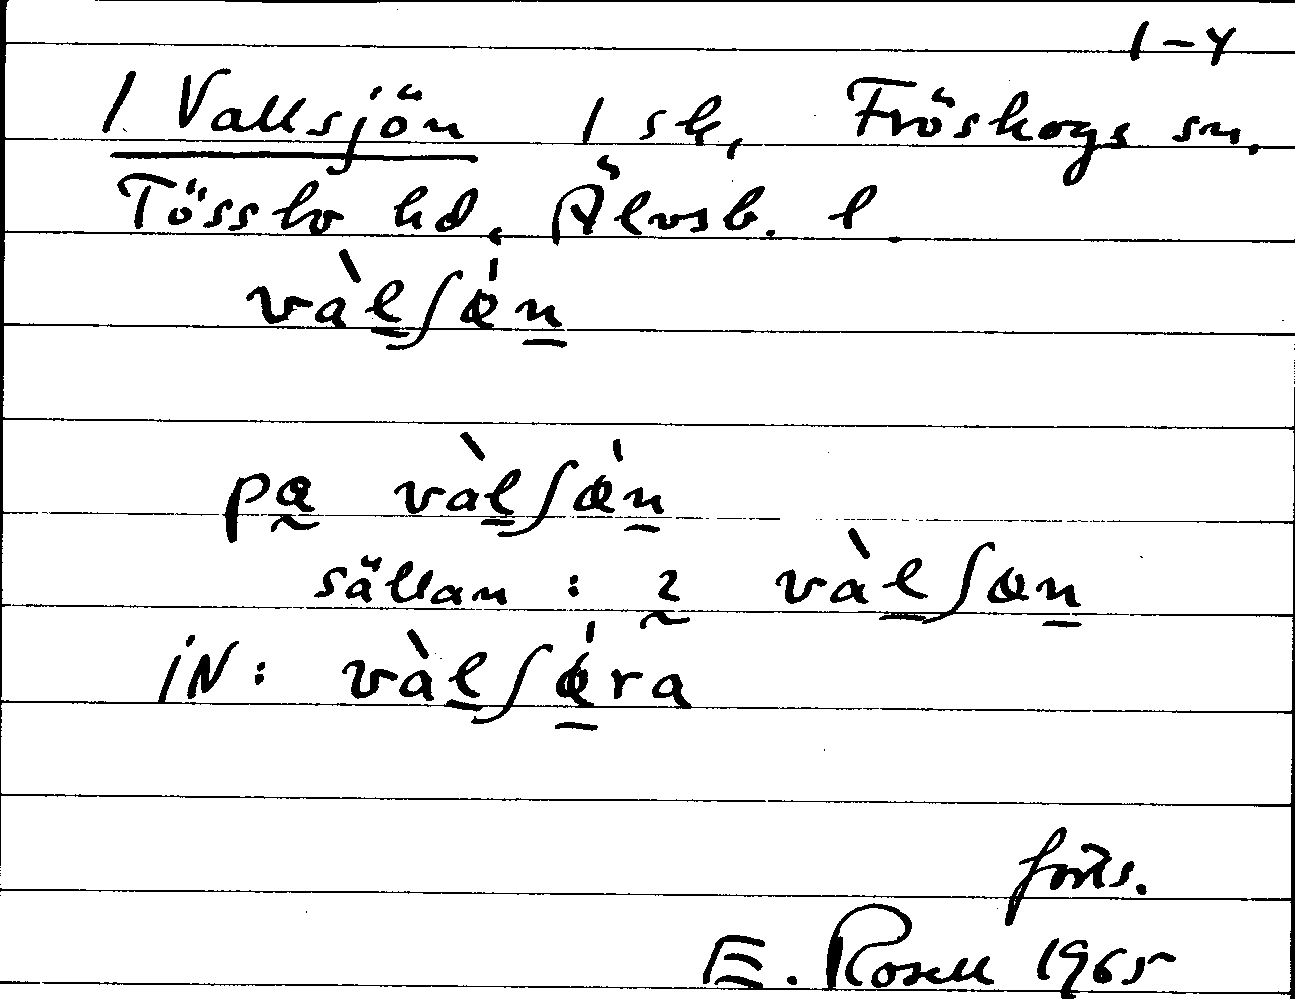 1-4
1 Vallsjön 1 sk, Fröskogs sn.
Tössbo hd. Älvsb. l.
vàlʃǿn
pa vàlʃǿn
sällan : 2 vàlʃøn
iN: vàlʃǿra
forts.
E. Rosell 1965